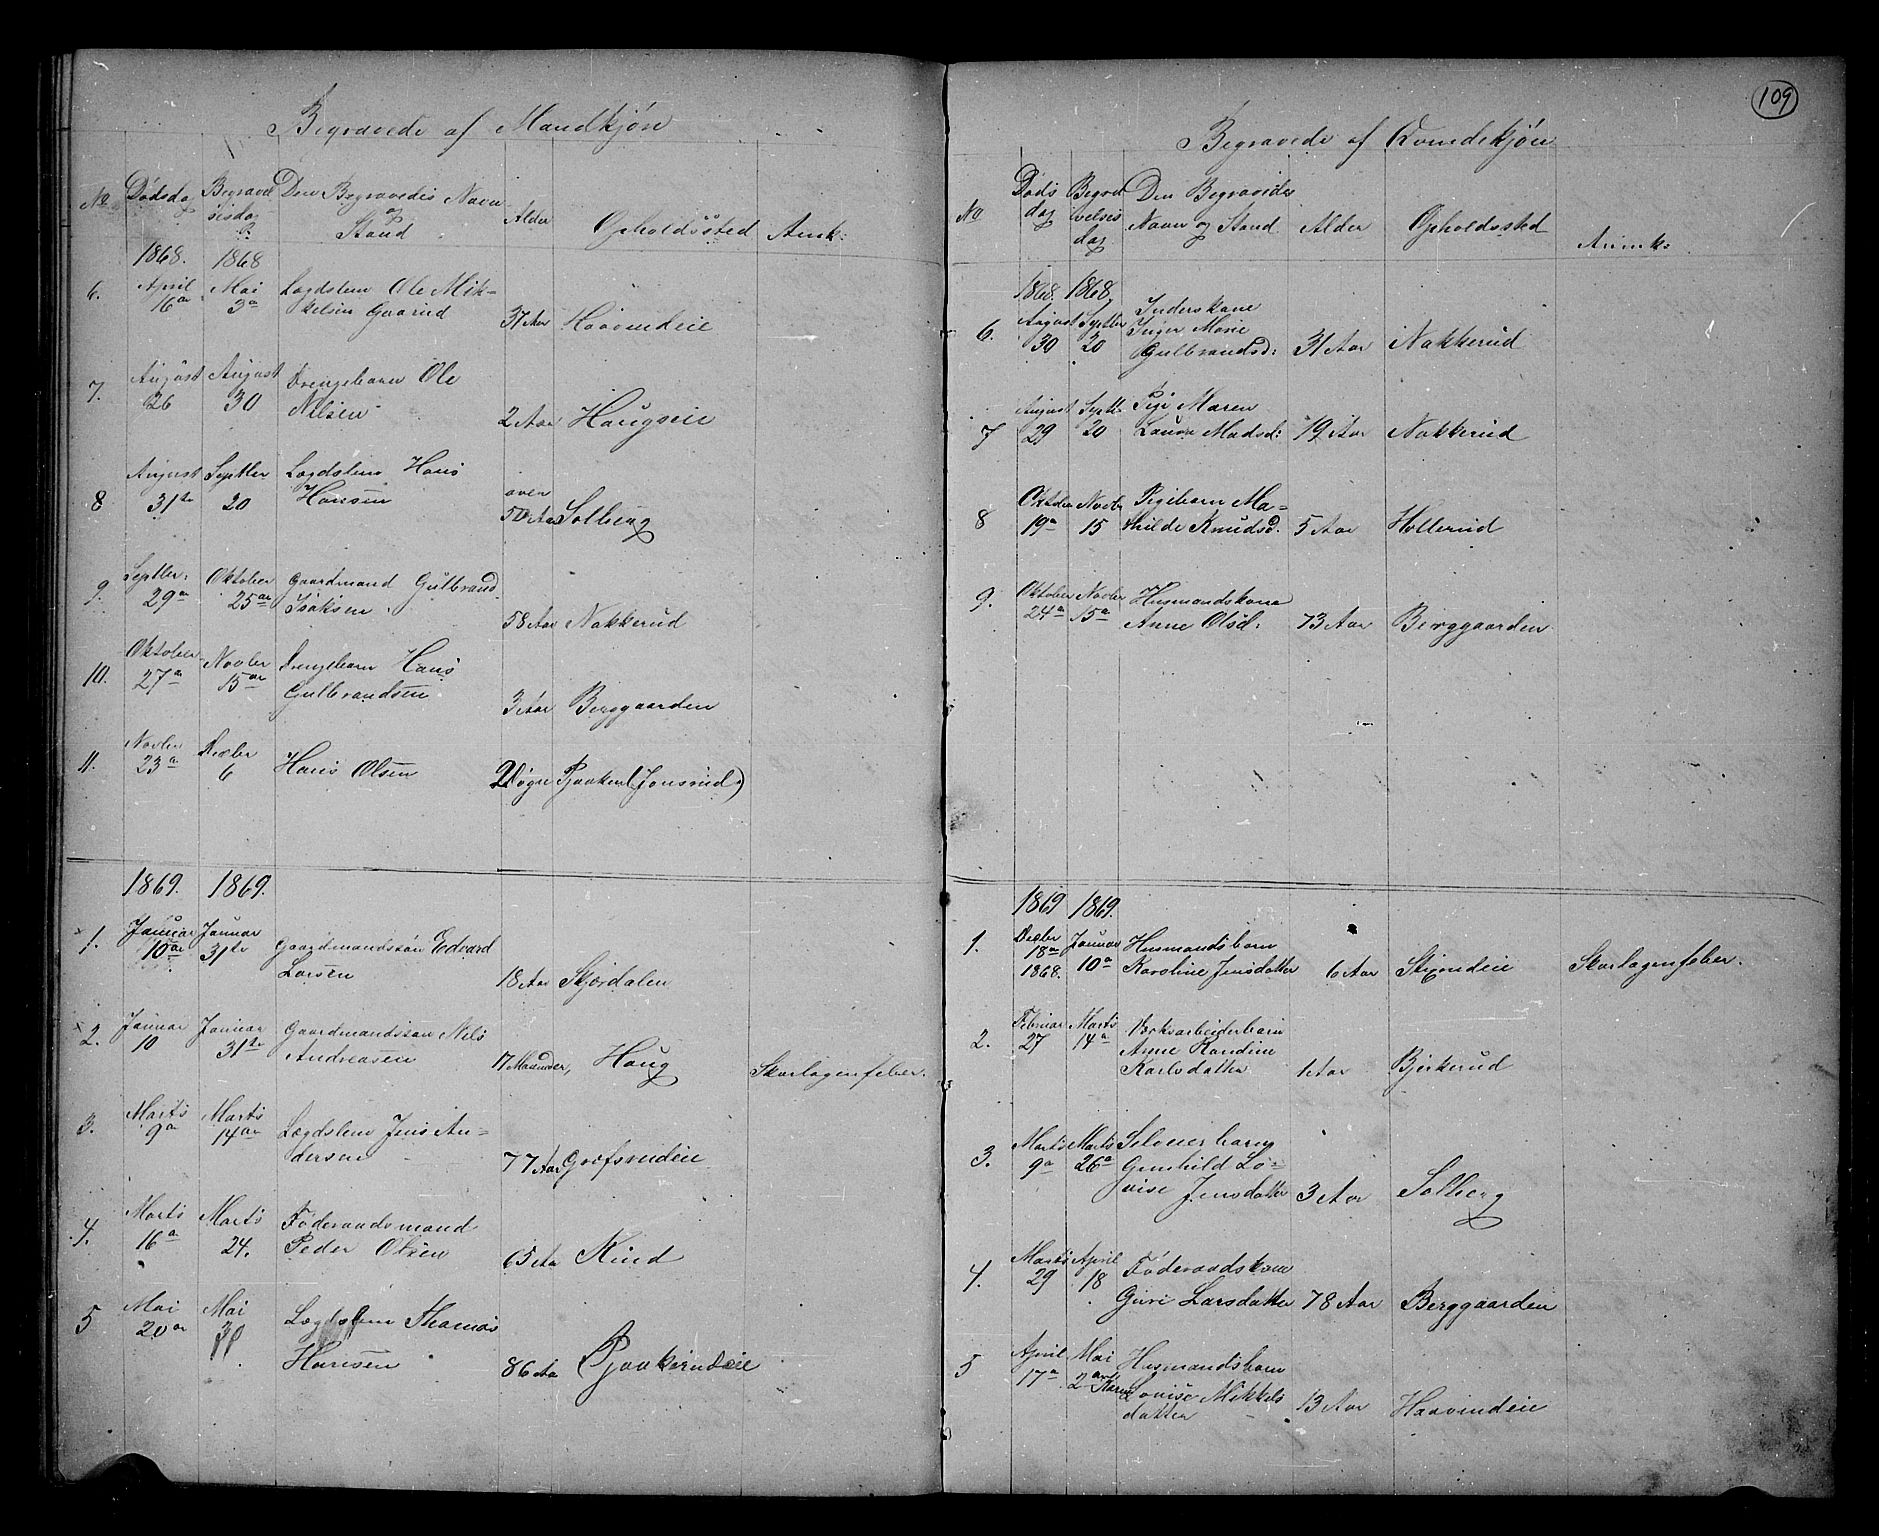 Begravede af Mandkjøn
No Dødsdag Begravelsesdag Den Begravedes Navn og Stand Alder Opholdssted Anmk:
1868. 1868
6. April 16de Mai 3de Lægdslem Ole Mikkelsen Gaarud 37 Aar Haavindeie
7. August 26 August 30 Drengebarn Ole Nilsen 2 Aar Haugseie
8 August 31te Septber 20 Lægdslem Hans Hansen over 50 Aar Solberg
9. Septber: 29de Oktober 25de Gaardmand Gulbrand Isaksen 58 Aar Nakkerud
10. Oktober 27de Novbr 15de Drengebarn Hans Gulbrandsen 3 Aar Berggaarden
11. Novbr 23de Decbr 6 Hans Olsen 2 Døgn Pjaaken (Jonsrud)
1869. 1869.
1. Januar 10de Januar 31te Gaardmandssøn Edvard Larsen 18 Aar Skjærdalen
2. Januar 10 Januar 31te Gaardmandssøn Nils Andreasen 17 Maaneder, Haug Skarlagenfeber.
3. Marts 9de Marts 14de Lægdslem Jens Andersen 77 Aar Græfsrudeie
4. Marts 16de Marts 24. Føderaadsmand Peder Olsen 65 Aar Rud
5 Mai 20de Mai 30 Lægdslem Thomas Hansen 86 Aar Pjaakerudeie
109
Begravede af Kvindekjøn
No Dødsdag Begravelsesdag Den Begravedes Navn og Stand Alder Opholdssted Anmk:
1868. 1868,
6. August 30 Septber 20 Inderskone Inger Marie Gulbrandsd: 31 Aar Nakkerud
7 August 29 Septb. 20 Pige Maren Laura Madsd: 19 Aar Nakkerud
8 Oktober 19de Novbr 15 Pigebarn Mathilde Knudsd: 5 Aar Hollerud
9. Oktober 24de Novbr 15de Husmandskone Anne Olsd: 73 Aar Berggaarden
1869 1869.
1. Decbr 18de 1868. Januar 10de Husmandsbarn Karoline Jensdatter 6 Aar Stixrudeie Skarlagenfeber.
2. Februar 27 Marts 14de Værksarbeiderbarn Anne Randine Karlsdatter 1 Aar Bjerkerud
3. Marts 9de Marts 26de Selveierbarn Gunhild Lovise Jensdatter 3 Aar Solberg
4. Marts 29 April 18 Føderaadskone Guri Larsdatter 78 Aar Berggaarden
5 April 17de Mai 2den Husmandsbarn Karen Lovise Mikkelsdatter 13 Aar Haavindeie